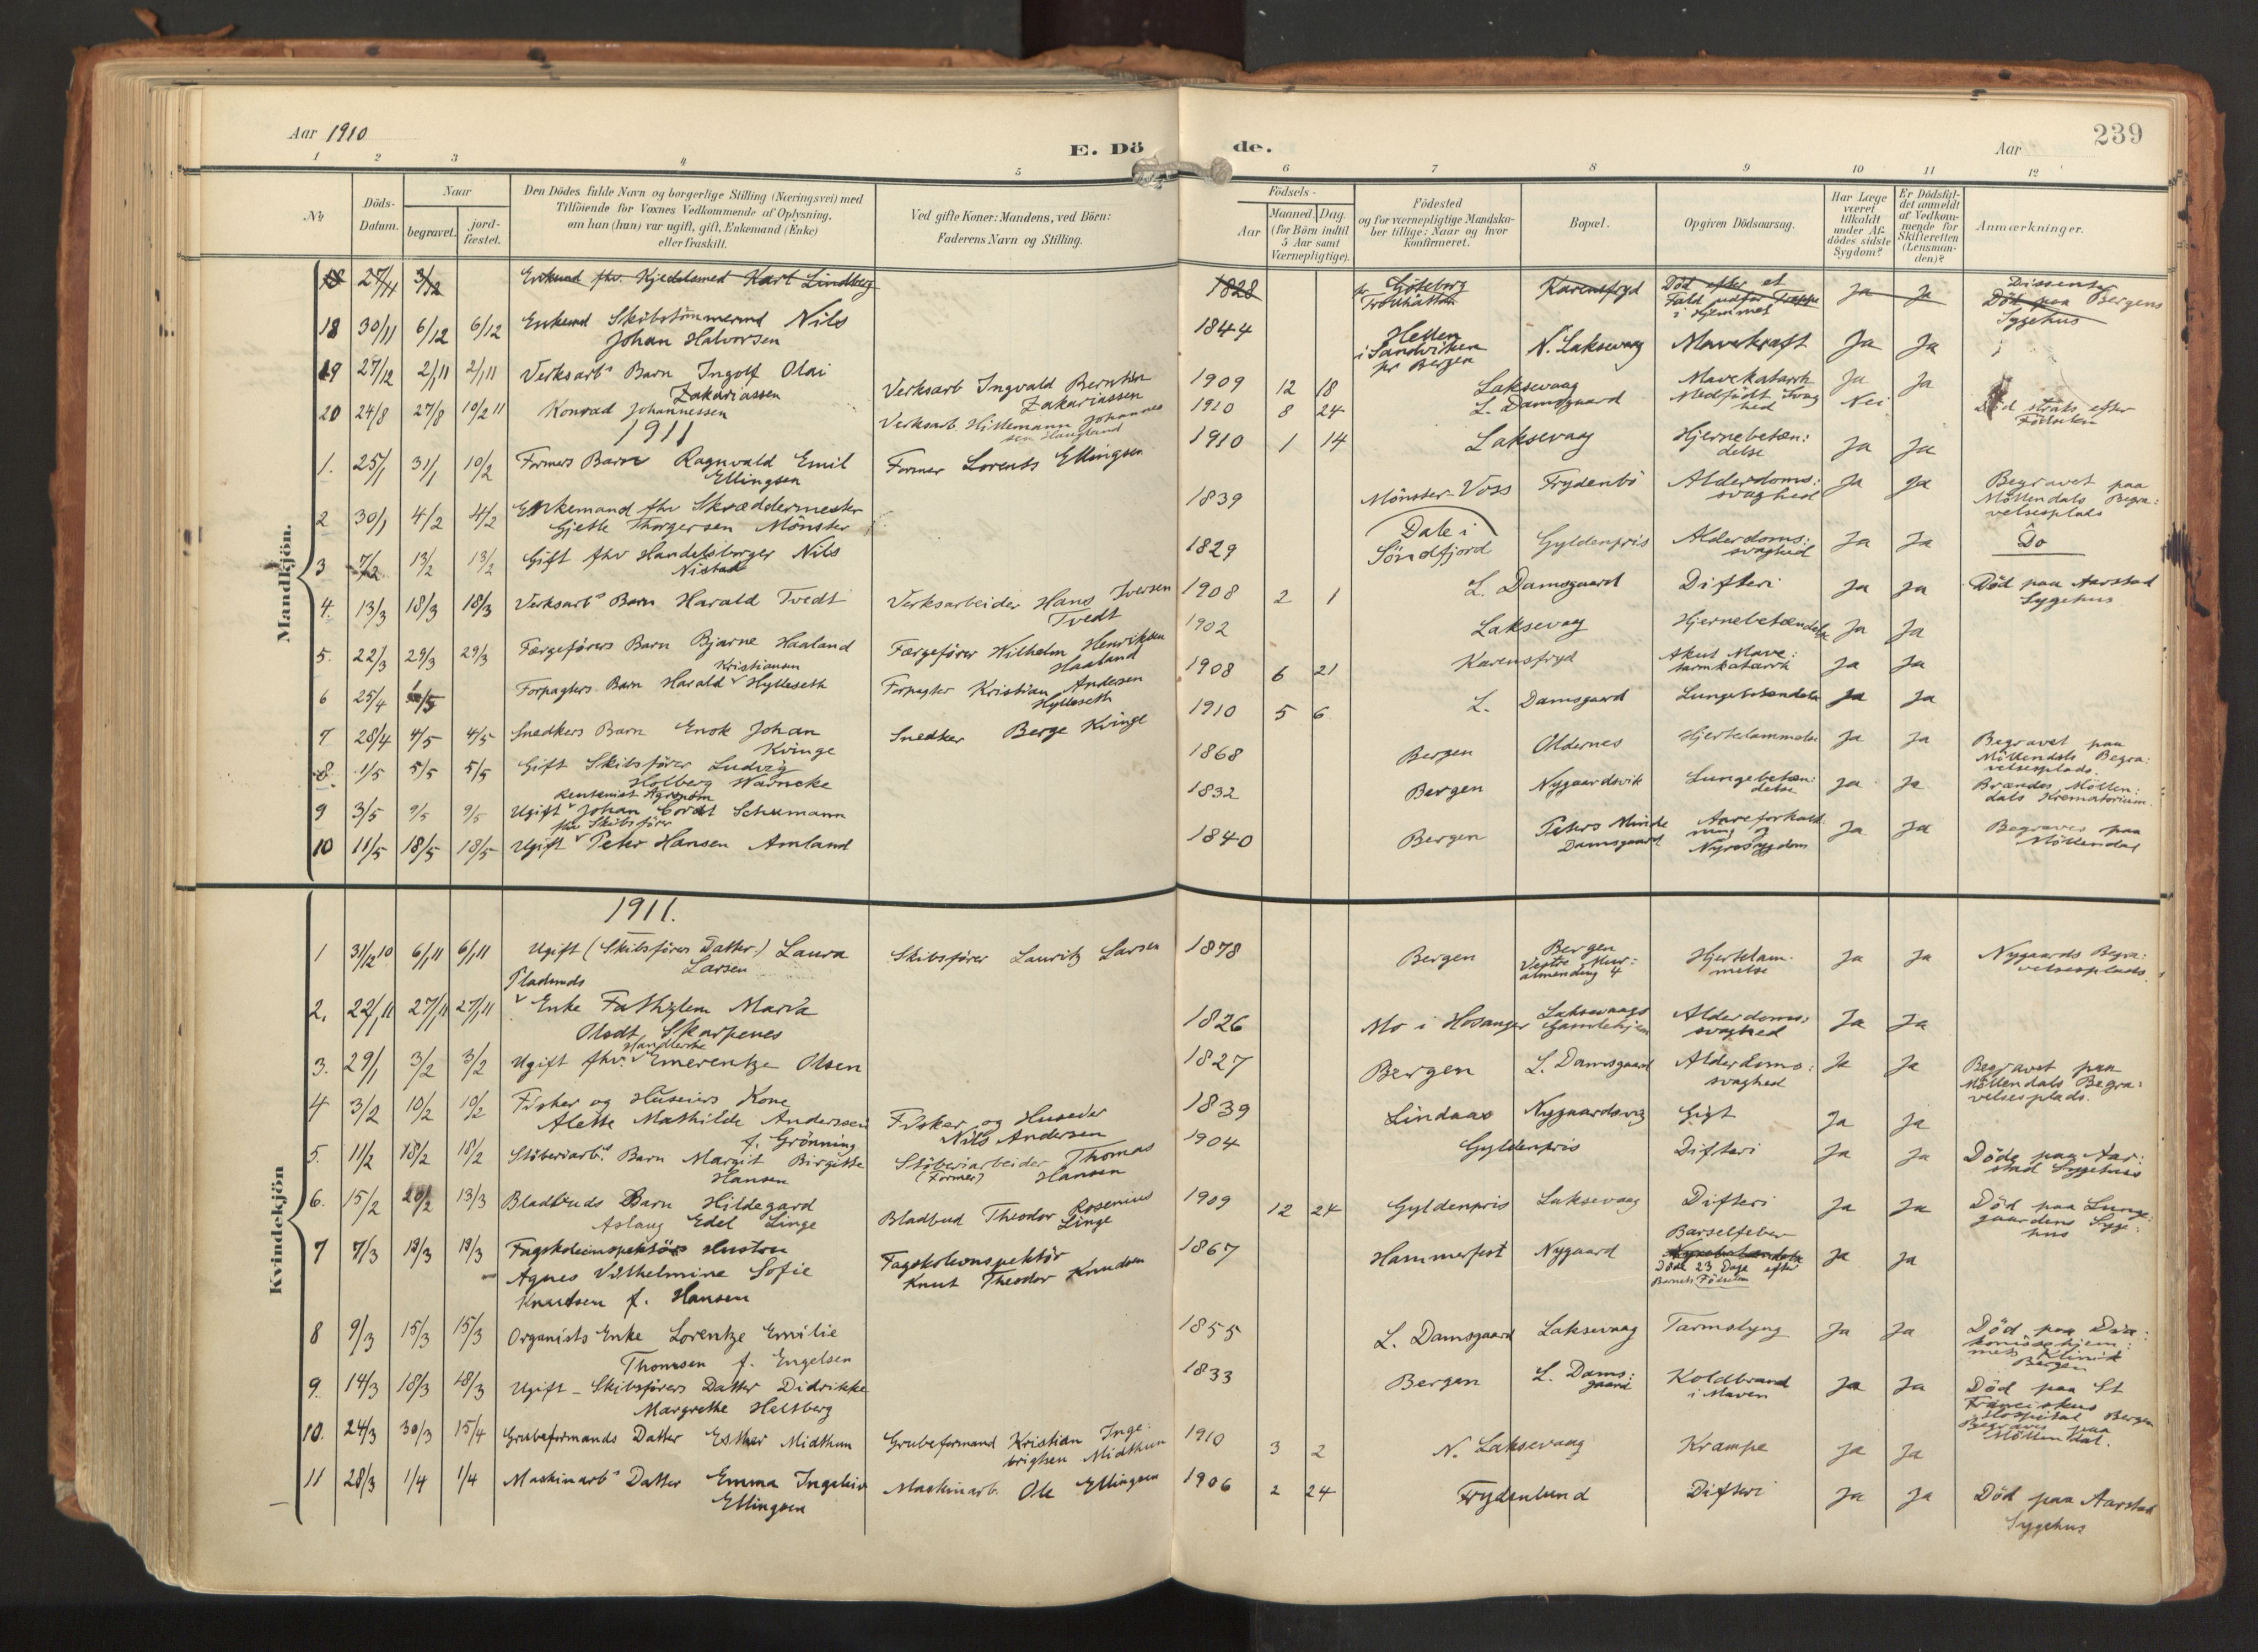 Aar 1910
E. Döde.
Aar
239
1 2 3 4 5 6 7 8 9 10 11 12
No
Döds-Datum.
Naar
begravet.
jord-fæstet.
Den Dödes fulde Navn og borgerlige Stilling (Næringsvei) med
Tilföiende for Voxnes Vedkommende af Oplysning,
om han (hun) var ugift, gift, Enkemand (Enke)
eller fraskilt.
Ved gifte Koner: Mandens, ved Börn:
Faderens Navn og Stilling.
Födsels-
Aar
Maaned. Dag.
(for Börn indtil
5 Aar samt
Værnepligtige).
Födested
og for værnepligtige Mandska-
ber tillige: Naar og hvor
Konfirmeret.
Bopæl.
Opgiven Dödsaarsag.
Har Læge
været
tilkaldt
under Af-
dödes sidste
Sygdom?
Er Dödsfal-
det anmeldt
af Vedkom-
mende for
Skifteretten
(Lensman-
den)?
Anmærkninger.
Mandkjön.
18 27/11 3/12 Enkemd fhv. Kjedelsmed Karl Lindberg 1828 Göteborg Trollhättan Karensfryd Död efter et Fald udfor Trappe i Hjemmet Ja Ja Dissenter Död paa Bergens Sygehus
18 30/11 6/12 6/12 Enkemd Skibstömmermd Nils
Johan Halvorsen 1844 Hellen i Sandviken pr Bergen N. Laksevaag Mavekræft Ja Ja
19 27/12 2/1 11 2/1 11 Verksarbs Barn Ingolf Olai
Zakariassen Verksarb Ingvald Berntsen Zakariassen 1909 12 18 Laksevaag Mavekatarrh Ja Ja
20 24/8 27/8 19/2 11 Konrad Johannessen Verksarb. Hillemann Johannessen Haugland 1910 8 24 L. Damsgaard Medfödt Svaghed Nei Död straks efter Födselen
1911
1. 25/1 31/1 10/2 Formers Barn Ragnvald Emil
Ellingsen Former Lorents Ellingsen 1910 1 14 Laksevaag Hjernebetæn:delse Ja Ja
2 30/1 4/2 4/2 Enkemand fhv Skræddermester
Gjetle Thorgersen Mönster 1839 Mönster-Voss Frydenbö Alderdoms:svaghed Ja Ja Begravet paa Möllendals Begra:velsesplads
3 7/2 13/2 13/2 Gift fhv Handelsborger Nils
Nistad 1829 Dale i Söndfjord Gyldenpris Alderdoms:svaghed Ja Ja Do
4. 13/3 18/3 18/3 Verksarbs Barn Harald Tvedt Verksarbeider Hans Iversen Tvedt 1908 2 1 L. Damsgaard Difteri Ja Ja Död paa Aarstad Sygehus
5. 22/3 29/3 29/3 Færgeförers Barn Bjarne Haaland Færgeförer Wilhelm Henriksen Haaland 1902 Laksevaag Hjernebetændelse Ja Ja
6 25/4 1/5 Forpagters Barn Harald Kristiansen Hylleseth Forpagter Kristian Andersen Hylleseth 1908 6 21 Karensfryd Akut Mave:tarmkatarrh Ja Ja
7 28/4 4/5 4/5 Snedkers Barn Enok Johan
Kvinge Snedker Berge Kvinge 1910 5 6 L. Damsgaard Lungebetændelse Ja Ja
8. 1/5 5/5 5/5 Gift Skibsförer Ludvig
Holberg Warncke 1868 Bergen Oldernes Hjertelammelse Ja Ja Begravet paa Möllendals Begra:velsesplads.
9 3/5 9/5 9/5 Ugift Rentenist Agronom Johan Cordt Schumann 1832 Bergen Nygaardsvik Lungebetæn:delse Ja Ja Brændes Möllen:dals Krematorium.
10 11/5 18/5 18/5 Ugift fhv Skibsförer Peter Hansen Amland 1840 Bergen Peters Minde Damsgaard Aareforkalkning og Nyresygdom Ja Ja Begraves paa Möllendal
Kvindekjön
1911.
1 31/12 10 6/1 11 6/1 11 Ugift (Skibsförers Datter.) Laura
Larsen Skibsförer Lauritz Larsen 1878 Bergen Bergen Vestre Mur:almending 4 Hjertelam-melse Ja Ja Nygaards Begra:velsesplads.
2. 22/1 11 27/1 11 27/1 11 Pladsmds Enke Maria
Olsdt. Skarpenes 1826 Mo i Hosanger Laksevaags Gamlehjem Alderdoms:svaghed Ja Ja
3. 29/1 3/2 3/2 Ugift fhv. Handlerske Emerentze Olsen 1827 Bergen L. Damsgaard Alderdoms:svaghed Ja Ja Begravet paa Möllendals Begra:velsesplads.
4 3/2 10/2 10/2 Fisker og Huseiers Kone
Alette Mathilde Anderssen
f. Grönning Fisker og Huseier Nils Andersen 1839 Lindaas Nygaardsvig Gigt Ja Ja
5. 11/2 18/2 18/2 Stöberiarbs Barn Margit Birgitte
Hansen Stöberiarbeider (Former) Thomas Hansen 1904 Gyldenpris Difteri Ja Ja Döde paa Aar:stad Sygehus
6. 15/2 20/2 13/3 Bladbuds Barn Hildegard
Aslaug Edel Linge Bladbud Theodor Rosenius Linge 1909 12 24 Gyldenpris Laksevaag Difteri Ja Ja Död paa Lunge:gaardens Syge:hus
7 7/3 13/3 13/3 Fagskoleinspektörs Hustru
Agnes Vilhelmine Sofie
Knudsen f. Hansen Fagskoleinspektör Knut Theodor Knudsen 1867 Hammerfest Nygaard Barselfeber Död 23 Dage efter Barnets Födselen Ja Ja
8 9/3 15/3 15/3 Organists Enke Lorentze Emilie
Thomsen f. Engelsen 1855 L. Damsgaard Laksevaag Tarmslyng Ja Ja Död paa Dia:konissehjem:mets Klinik Bergen
9. 14/3 18/3 18/3 Ugift – Skibsförers Datter Didrikke
Margrethe Heltberg 1833 Bergen L. Dams:gaard Koldbrand i Maven Ja Ja Död paa St Franciskus Hospital Bergen Begraves paa Möllendal.
10. 24/3 30/3 15/4 Grubeformands Datter Esther Midthun Grubeformand Kristian Inge:brigtsen Midthun 1910 3 2 N. Laksevaag Krampe Ja Ja
11 28/3 1/4 1/4 Maskinarbs Datter Emma Ingeleiv
Ellingsen Maskinarb. Ole Ellingsen 1906 2 24 Frydenlund Difteri Ja Ja Död paa Aarstad Sygehus